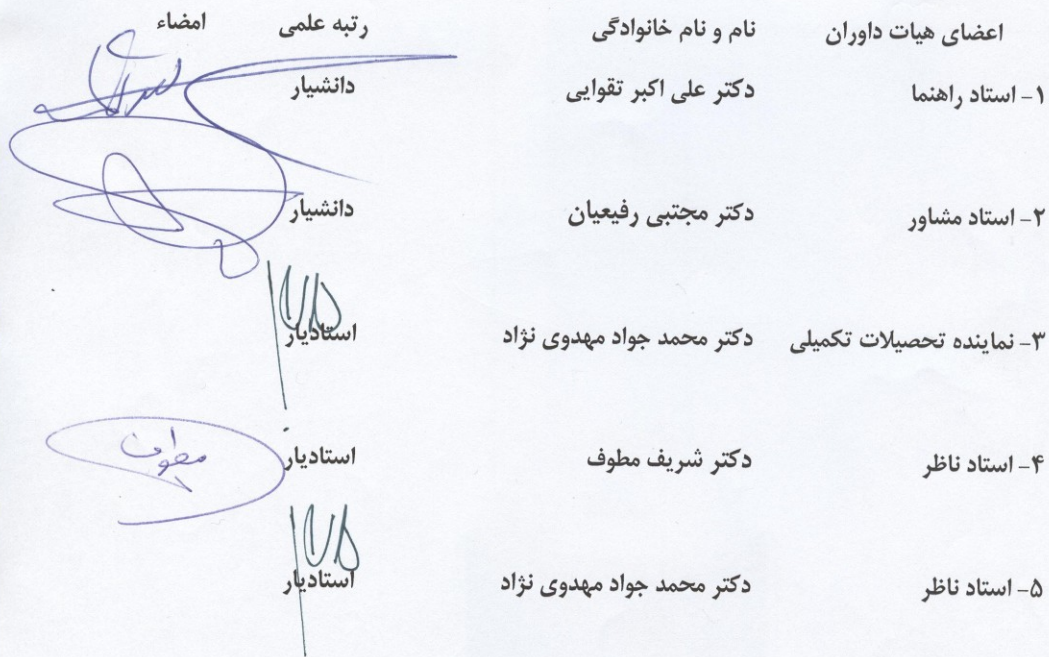 اعضای هیات داوران نام و نام خانوادگی رتبه علمی امضاء
۱- استاد راهنما دکتر علی اکبر تقوایی دانشیار
۲- استاد مشاور دکتر مجتبی رفیعیان دانشیار
۳- نماینده تحصیلات تکمیلی دکتر محمد جواد مهدوی نژاد استادیار
۴- استاد ناظر دکتر شریف مطوف استادیار مطوف
۵- استاد ناظر دکتر محمد جواد مهدوی نژاد استادیار